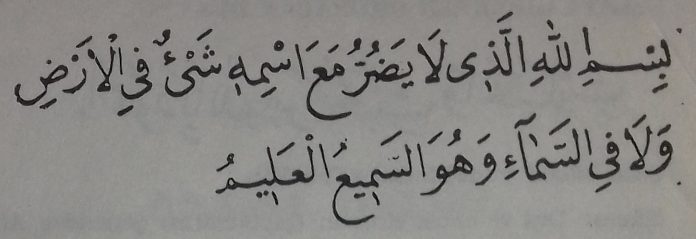 بِسْمِ اللهِ الَّذِى لَا يَضُرُّ مَعَ اسْمِهِ شَىْءٌ فِي الْاَرْضِ
وَلَا فِي السَّمَآءِ وَهُوَ السَّمِيعُ الْعَلِيمُ